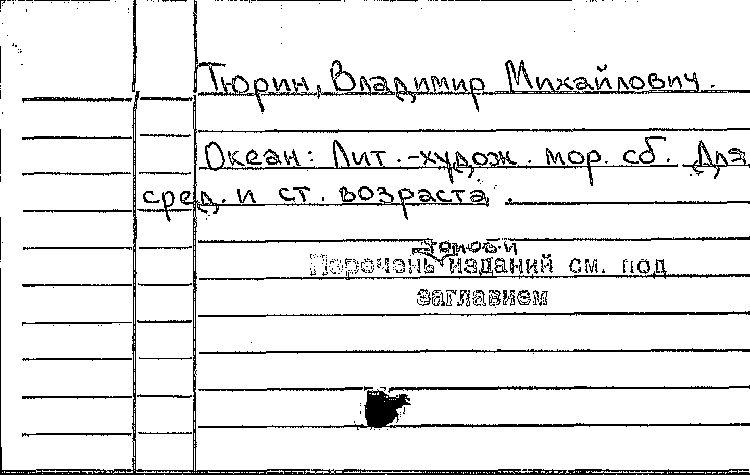 Тюрин, Владимир Михайлович.
Океан: Лит.-худож. мор. сб. Для
сред. и ст. возраста.
Перечень изданий см. под
заглавием